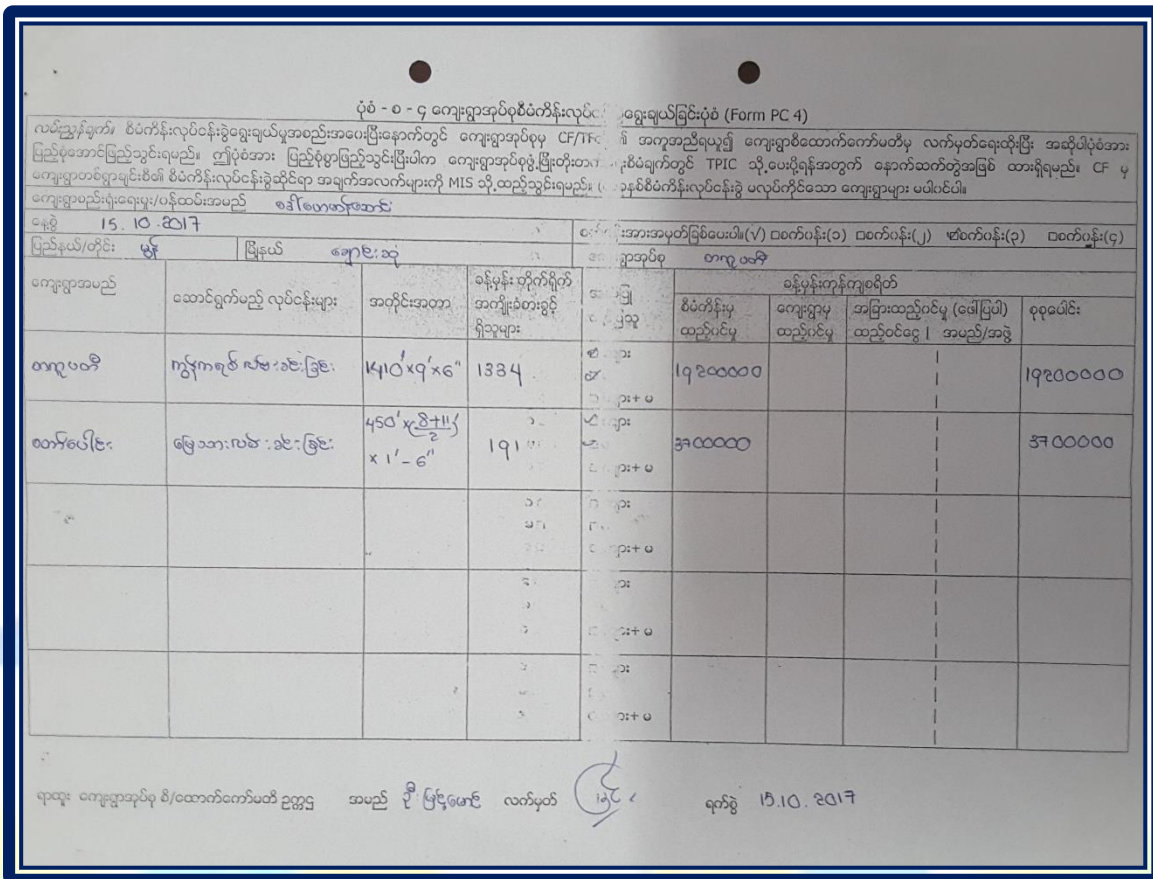 ပုံစံ - စ - ၄ ကျေးရွာအုပ်စုစီမံကိန်းလုပ်င ရွေးချယ်ခြင်းပုံစံ (Form PC 4)
လမ်းညွှန်ချက်။ စီမံကိန်းလုပ်ငန်းခွဲရွေးချယ်မှုအစည်းအဝေးပြီးနောက်တွင် ကျေးရွာအုပ်စုမှ CF/TFc ၏ အကူအညီရယူ၍ ကျေးရွာစီထောက်ကော်မတီမှ လက်မှတ်ရေးထိုးပြီး အဆိုပါပုံစံအား
ပြည့်စုံအောင်ဖြည့်သွင်းရမည်။ ဤပုံစံအား ပြည့်စုံစွာဖြည့်သွင်းပြီးပါက ကျေးရွာအုပ်စုဖွံ့ဖြိုးတိုးတ စီမံချက်တွင် TPIC သို့ပေးပို့ရန်အတွက် နောက်ဆက်တွဲအဖြစ် ထားရှိရမည်။ CF မှ
ကျေးရွာတစ်ရွာချင်းစီ၏ စီမံကိန်းလုပ်ငန်းခွဲဆိုင်ရာ အချက်အလက်များကို MIS သို့ထည့်သွင်းရမည်။ နှစ်စီမံကိန်းလုပ်ငန်းခွဲ မလုပ်ကိုင်သော ကျေးရွာများ မပါဝင်ပါ။
ကျေးရွာစည်းရုံးရေးမှူး/ဝန်ထမ်းအမည်
နေ့စွဲ 15.10.2017 အားအမှတ်ခြစ်ပေးပါ။(√) □စက်ဝန်း(၁) □စက်ဝန်း(၂) ☑စက်ဝန်း(၃) □စက်ဝန်း(၄)
ပြည်နယ်/တိုင်း မွန် မြို့နယ် ချောင်းဆုံ ရွာအုပ်စု တကူပတီ
ကျေးရွာအမည် ဆောင်ရွက်မည့် လုပ်ငန်းများ အတိုင်းအတာ ခန့်မှန်း တိုက်ရိုက် အကျိုးခံစားခွင့် ရှိသူများ ခန့်မှန်းကုန်ကျစရိတ်
စီမံကိန်းမှ ထည့်ဝင်မှု ကျေးရွာမှ ထည့်ဝင်မှု အခြားထည့်ဝင်မှု (ဖေါ်ပြပါ) ထည့်ဝင်ငွေ | အမည်/အဖွဲ့ စုစုပေါင်း
တကူပတီ ကွန်ကရစ်လမ်းခင်းခြင်း 1410'x9'x6" 1334 19200000 19200000
မြေသားလမ်းခင်းခြင်း 450'x(8+11/2) x 1'-6" 191 3700000 3700000
ရာထူး ကျေးရွာအုပ်စု စီ/ထောက်ကော်မတီ ဥက္ကဋ္ဌ အမည် ဦးမြင့်မောင် လက်မှတ် ရက်စွဲ 15.10.2017